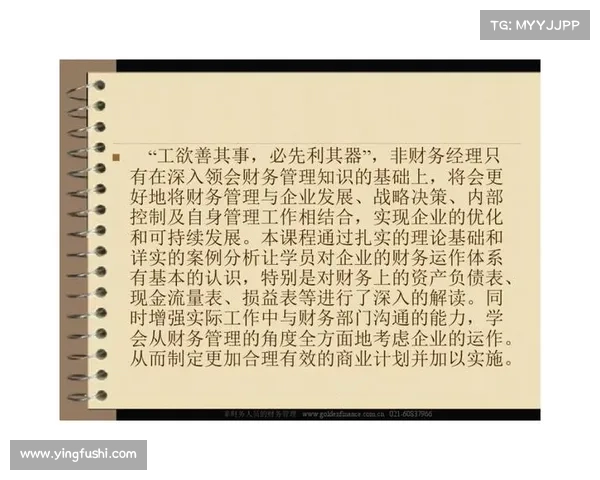 TG: MYYJJPP
“工欲善其事，必先利其器”，非财务经理只
有在深入领会财务管理知识的基础上，将会更
好地将财务管理与企业发展、战略决策、内部
控制及自身管理工作相结合，实现企业的优化
和可持续发展。本课程通过扎实的理论基础和
详实的案例分析让学员对企业的财务运作体系
有基本的认识，特别是对财务上的资产负债表、
现金流量表、损益表等进行了深入的解读。同
时增强实际工作中与财务部门沟通的能力，学
会从财务管理的角度全方面地考虑企业的运作。
从而制定更加合理有效的商业计划并加以实施。
非财务人员的财务管理 www.goldenfinance.com.cn 021-60837966
www.yingfushi.com